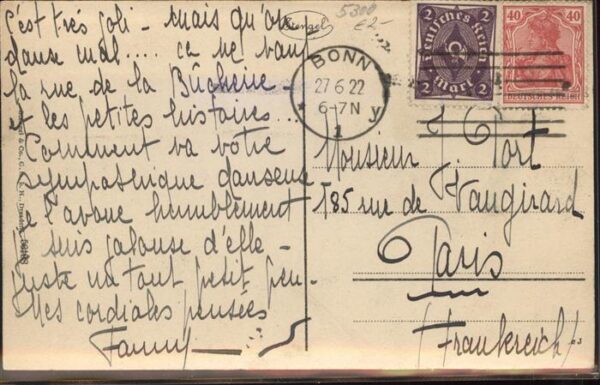 C'est très joli - mais qu'on
danse mal.... ce ne vaut
la rue de la Bûcherie -
et les petites histoires...
Comment va votre
sympathique danseuse
Je l'avoue humblement
suis jalouse d'elle -
juste un tout petit peu -
Mes cordiales pensées
Fanny
5300
Stengel
BONN
27 6 22
6-7 N
1 y
2 Deutsches Reich 2
2 Mark 2
40 40
DEUTSCHES REICH
Monsieur J. Port
185 rue de Vaugirard
Paris
(Frankreich)